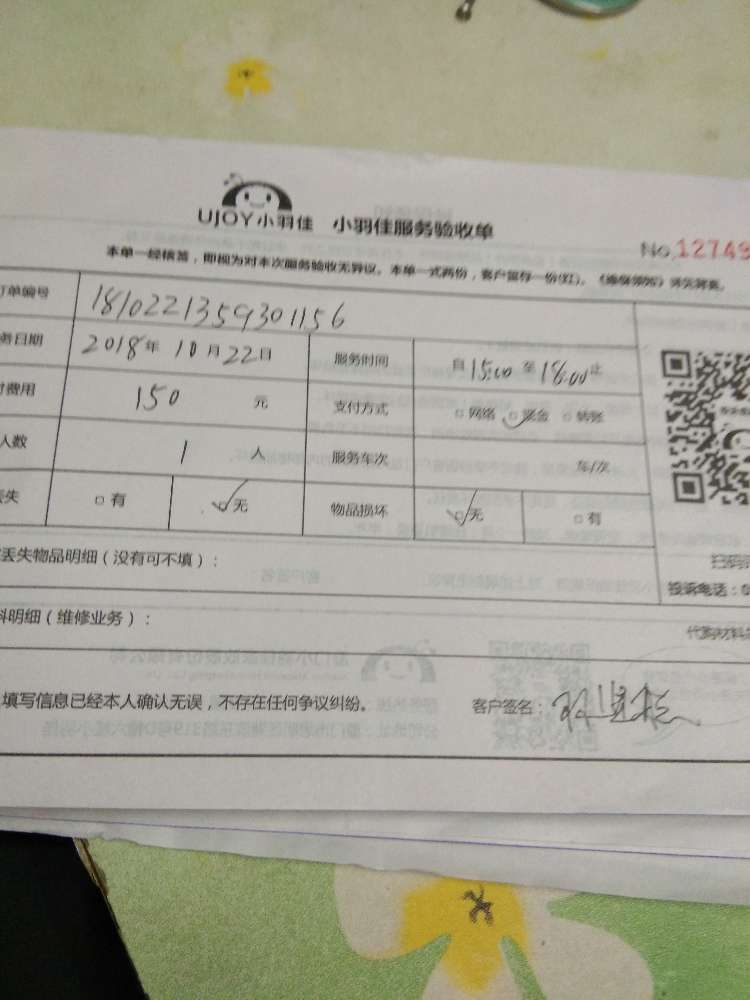 UJOY小羽佳 小羽佳服务验收单
No.12749
本单一经核答，即视为对本次服务验收无异议。本单一式两份，客户留存一份(红)。
订单编号 1810221359301156
务日期 2018年10月22日 服务时间 自15:00至18:00止
付费用 150 元 支付方式 □网络 □现金 □转账
人数 1 人 服务车次 车/次
丢失 □有 □无 物品损坏 □无 □有
丢失物品明细（没有可不填）：
投诉电话：0
料明细（维修业务）：
代购材料
填写信息已经本人确认无误，不存在任何争议纠纷。 客户签名：